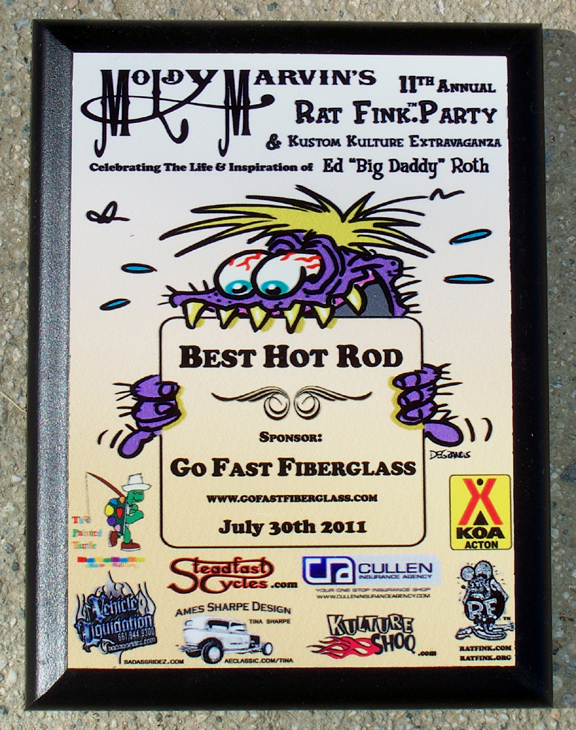 Moldy Marvin's
11th Annual
Rat Fink™ Party
& Kustom Kulture Extravaganza
Celebrating The Life & Inspiration of Ed "Big Daddy" Roth
Best Hot Rod
Sponsor:
Go Fast Fiberglass
www.gofastfiberglass.com
July 30th 2011
KOA
ACTON
The
Painted
Turtle
Steadfast
Cycles.com
CULLEN
INSURANCE AGENCY
YOUR ONE STOP INSURANCE SHOP
WWW.CULLENINSURANCEAGENCY.COM
Vehicle
Liquidation
661.944.3100
BADASSRIDEZ.COM
AMES SHARPE DESIGN
TINA SHARPE
AECLASSIC.COM/TINA
KULTURE
SHOQ
.com
R.F.
TM
RATFINK.COM
RATFINK.ORG